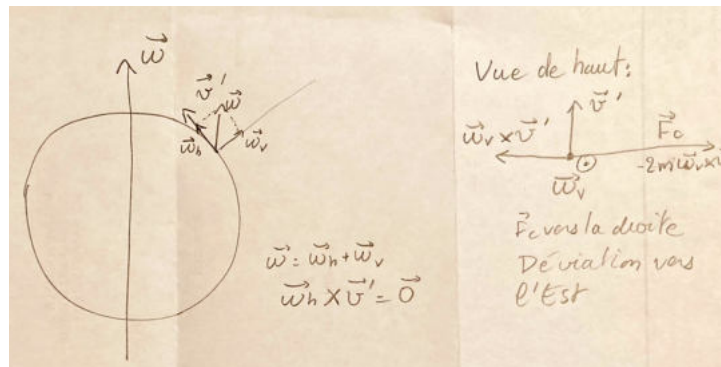 ω⃗
v⃗'
ω⃗
ω⃗h
ω⃗v
ω⃗ = ω⃗h + ω⃗v
ω⃗h × v⃗' = 0⃗
Vue de haut:
v⃗'
ω⃗v × v⃗'
F⃗c
-2m ω⃗v × v⃗
ω⃗v
F⃗c vers la droite
Déviation vers
l'Est